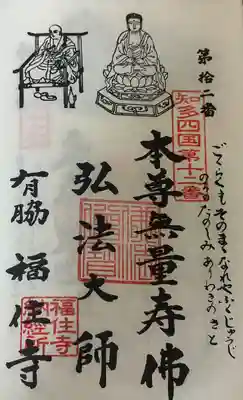 第拾二番
知多四国第十二番
ごくらくもその なれやふくじゅうじ
たのしみありわきのさと
本尊無量寿佛
弘法大師
有脇 福住寺
福住寺
納経所